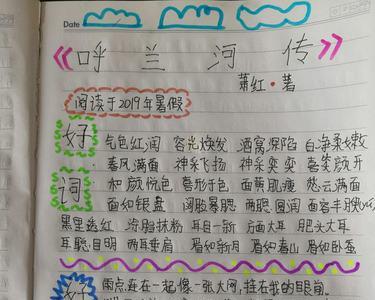 Date
《呼兰河传》
萧红·著
阅读于2019年暑假
好词
气色红润 容光焕发 酒窝深陷 白净柔嫩
春风满面 神采飞扬 神采奕奕 喜笑颜开
和颜悦色 喜形于色 面黄肌瘦 愁云满面
面如银盘 两腮暴聪 两聪圆润 面容丰腴
黑里透红 涂脂抹粉 耳目一新 方面大耳 肥头大耳
耳聪目明 两耳垂肩 眉如新月 眉如春山 眉如卧蚕
好
雨点连在一起像一张大网,挂在我的眼前。